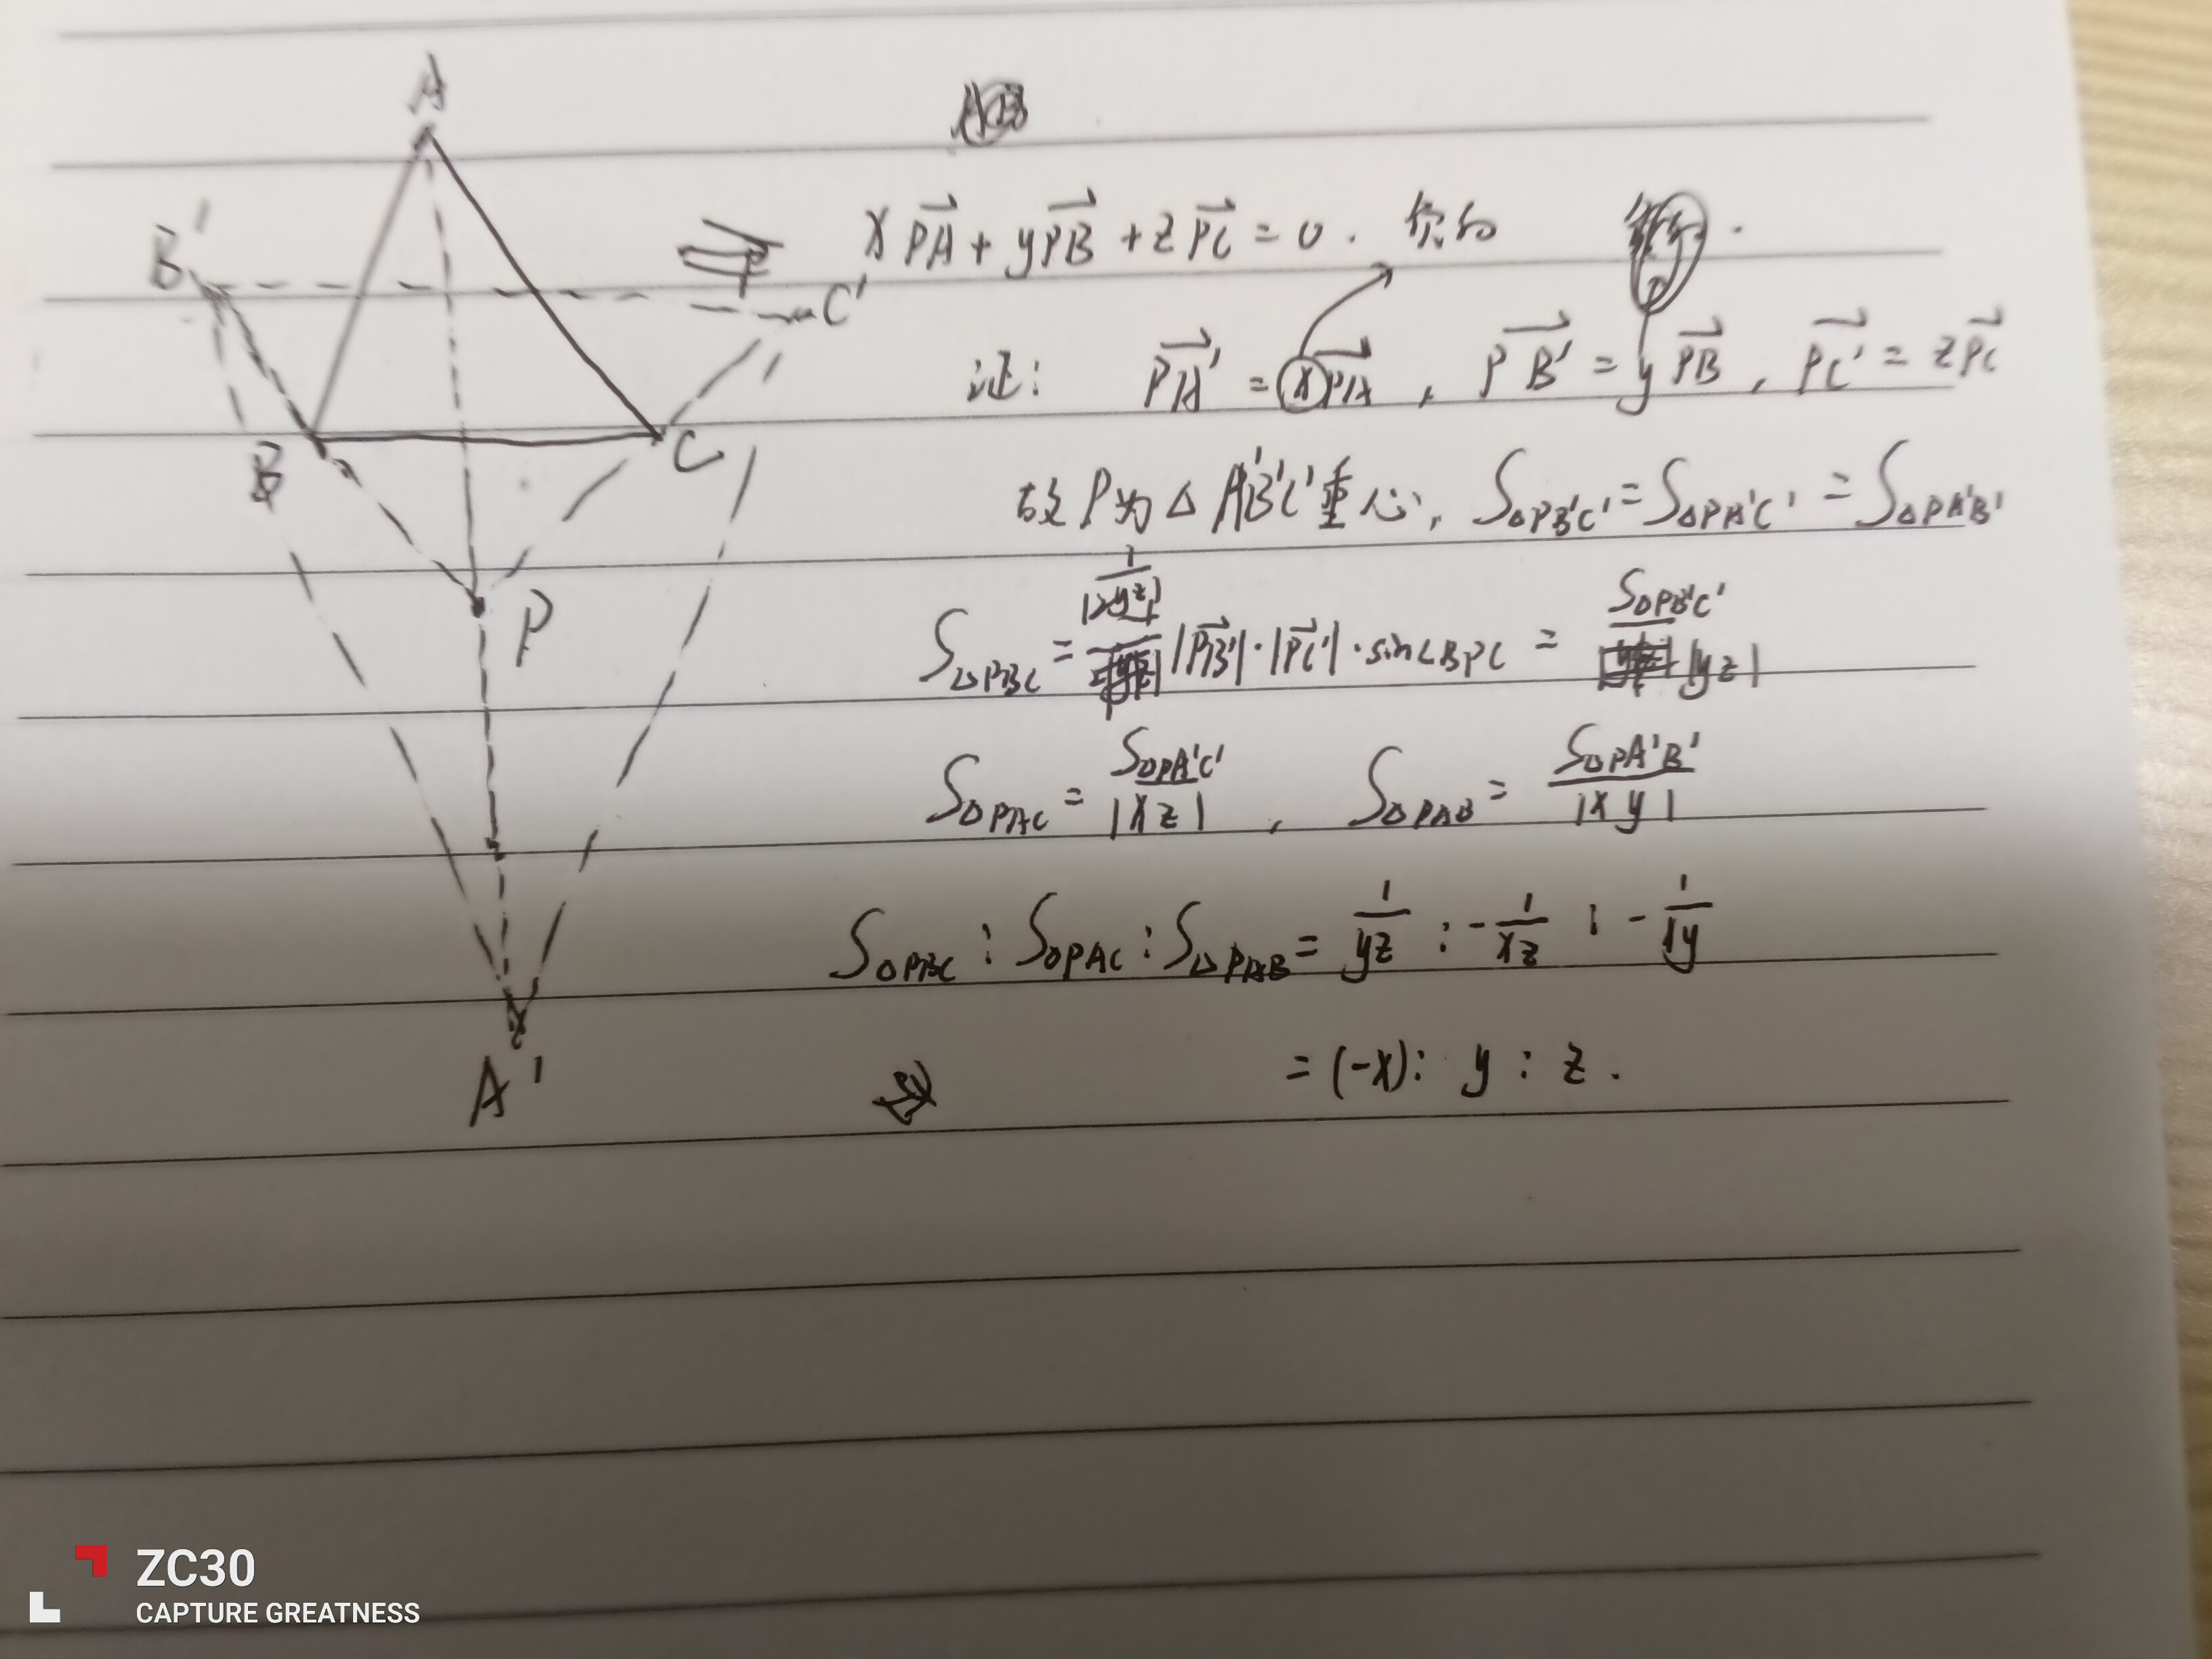 A
B'
C'
B
C
P
A'
xPA→ + yPB→ + zPC→ = 0.
证: PA'→ = xPA→, PB'→ = yPB→, PC'→ = zPC→
故P为△A'B'C'重心, S△PB'C' = S△PA'C' = S△PA'B'
S△PBC = 1/|2yz| |PB'→|·|PC'→|·sin∠BPC = S△PB'C'/|yz|
S△PAC = S△PA'C'/|xz|, S△PAB = S△PA'B'/|xy|
S△PBC : S△PAC : S△PAB = 1/yz : -1/xz : -1/xy
= (-x): y : z.
ZC30
CAPTURE GREATNESS